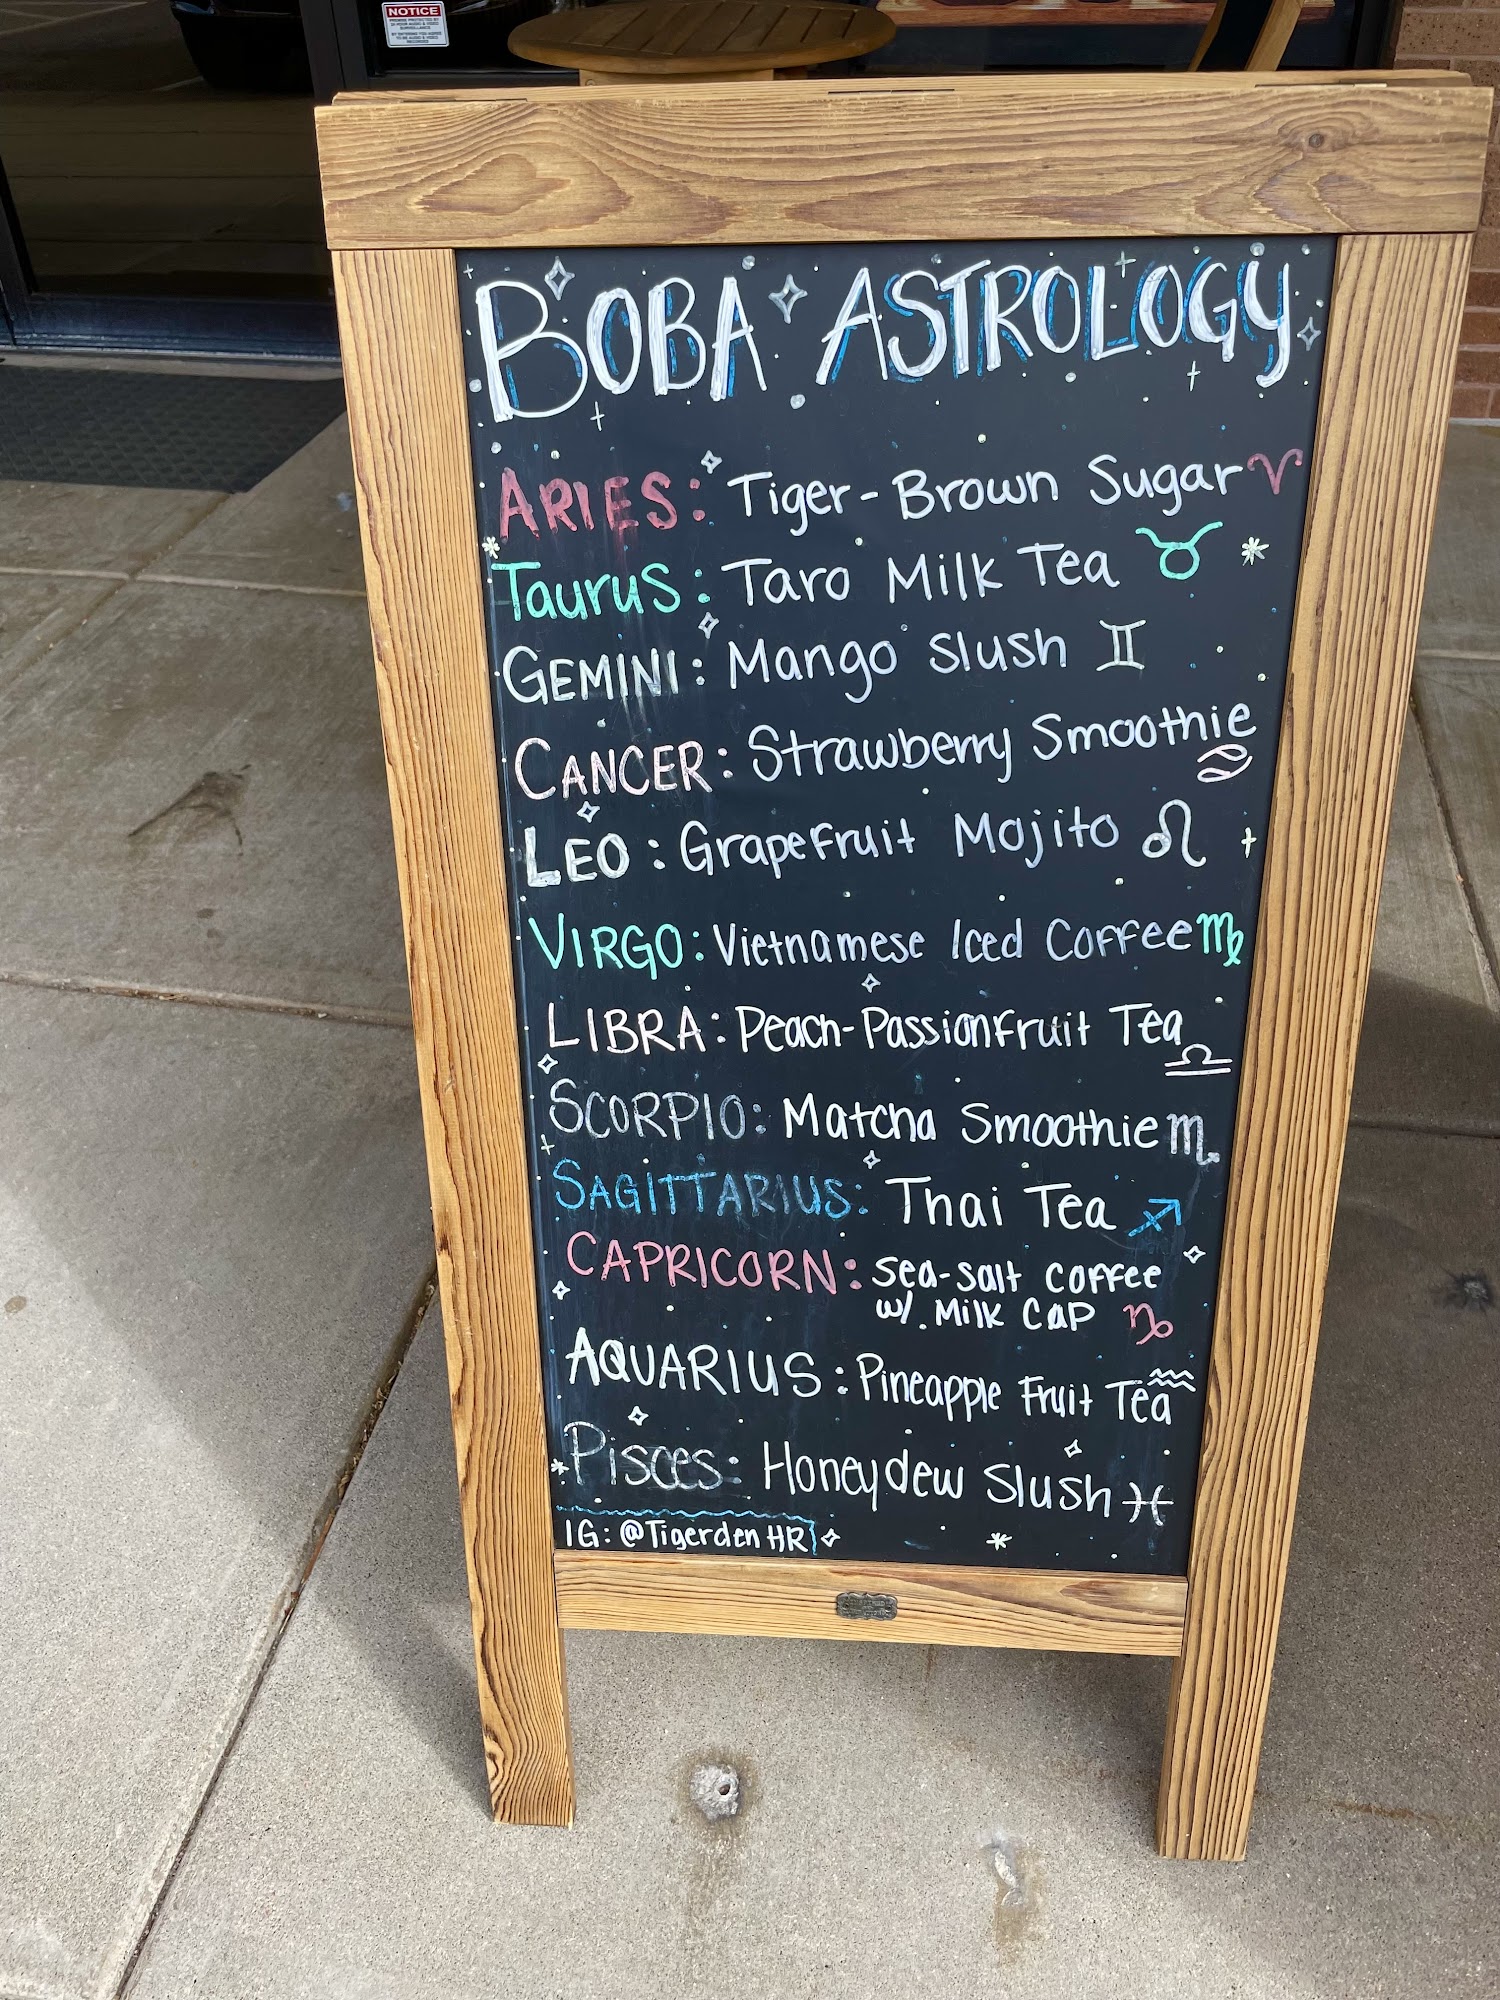 NOTICE
BOBA ASTROLOGY
ARIES: Tiger-Brown Sugar ♈
Taurus: Taro Milk Tea ♉
GEMINI: Mango Slush ♊
CANCER: Strawberry Smoothie ♋
LEO: Grapefruit Mojito ♌
VIRGO: Vietnamese Iced Coffee ♍
LIBRA: Peach-Passionfruit Tea ♎
SCORPIO: Matcha Smoothie ♏
SAGITTARIUS: Thai Tea ♐
CAPRICORN: Sea-Salt Coffee
w/. Milk Cap ♑
AQUARIUS: Pineapple Fruit Tea ♒
Pisces: Honeydew Slush ♓
IG: @TigerdenHR